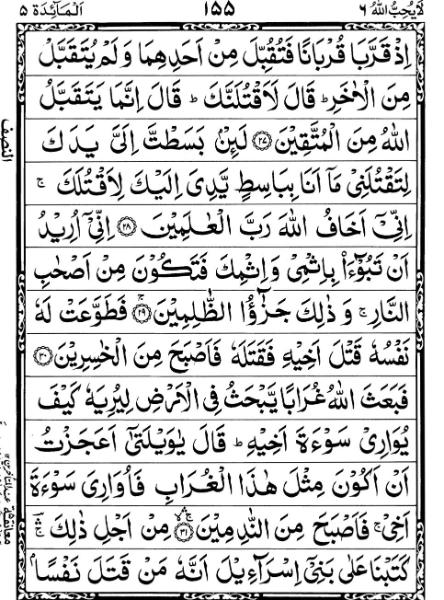 لَايُحِبُّ اللهُ ٦
١٥٥
اَلْمَآئِدَة ٥
اِذْ قَرَّبَا قُرْبَانًا فَتُقُبِّلَ مِنْ اَحَدِهِمَا وَلَمْ يُتَقَبَّلْ
مِنَ الْاٰخَرِ ؕ قَالَ لَاَقْتُلَنَّكَ ؕ قَالَ اِنَّمَا يَتَقَبَّلُ
اللهُ مِنَ الْمُتَّقِيْنَ ﴿۲۷﴾ لَئِنْۢ بَسَطْتَّ اِلَيَّ يَدَكَ
لِتَقْتُلَنِيْ مَاۤ اَنَا بِبَاسِطٍ يَّدِيَ اِلَيْكَ لِاَقْتُلَكَ ۚ
اِنِّيْۤ اَخَافُ اللهَ رَبَّ الْعٰلَمِيْنَ ﴿۲۸﴾ اِنِّيْۤ اُرِيْدُ
اَنْ تَبُوْٓءَاۡ بِاِثْمِيْ وَاِثْمِكَ فَتَكُوْنَ مِنْ اَصْحٰبِ
النَّارِ ۚ وَ ذٰلِكَ جَزٰٓؤُا الظّٰلِمِيْنَ ﴿۲۹﴾ۚ فَطَوَّعَتْ لَهٗ
نَفْسُهٗ قَتْلَ اَخِيْهِ فَقَتَلَهٗ فَاَصْبَحَ مِنَ الْخٰسِرِيْنَ ﴿۳۰﴾
فَبَعَثَ اللهُ غُرَابًا يَّبْحَثُ فِي الْاَرْضِ لِيُرِيَهٗ كَيْفَ
يُوَارِيْ سَوْءَةَ اَخِيْهِ ؕ قَالَ يٰوَيْلَتٰۤى اَعَجَزْتُ
اَنْ اَكُوْنَ مِثْلَ هٰذَا الْغُرَابِ فَاُوَارِيَ سَوْءَةَ
اَخِيْ ۚ فَاَصْبَحَ مِنَ النّٰدِمِيْنَ ﴿۳۱﴾ مِنْ اَجْلِ ذٰلِكَ ۚ
كَتَبْنَا عَلٰى بَنِيْۤ اِسْرَآءِيْلَ اَنَّهٗ مَنْ قَتَلَ نَفْسًاۢ
النصف
معانقة